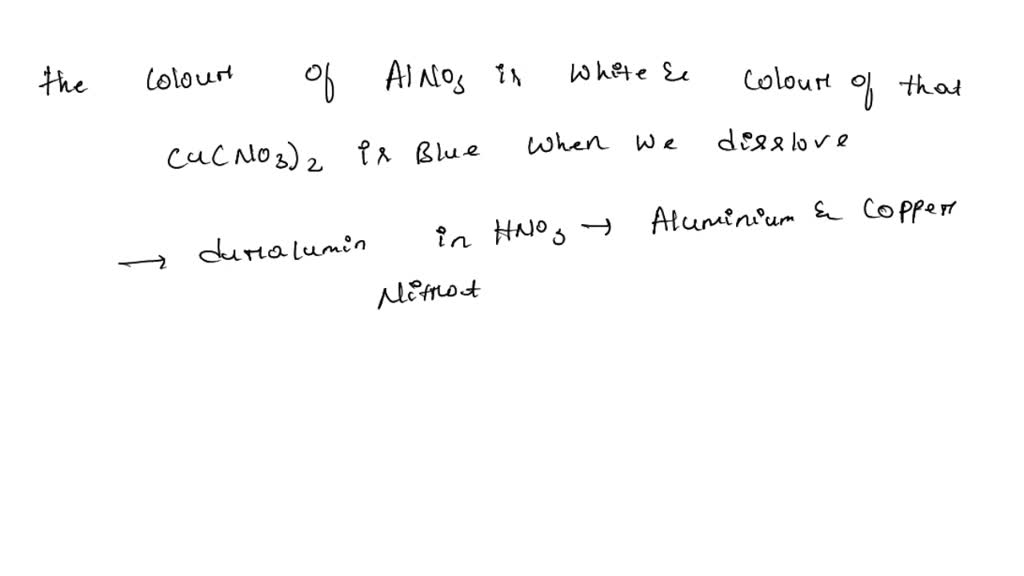 the colour of AlNO3 is white & colour of that
Cu(NO3)2 is Blue when we disslove
→ duralumin in HNO3 → Aluminium & Copper
Nitrat